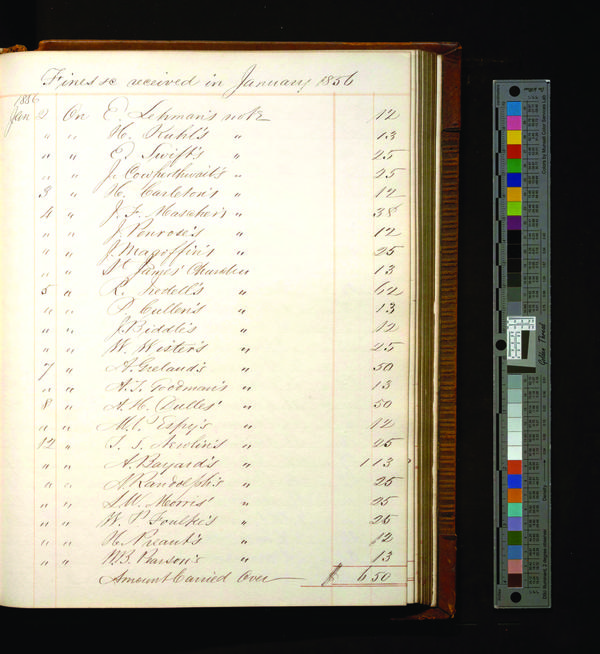 Fines &c received in January 1856
1856
Jan 2 On E. Lehman's note 12
" " H. Kuhl's " 13
" " E. Swift's " 25
" " J. Cowperthwait's " 25
3 " H. Carleton's " 12
4 " J. F. " 38
" " J. Penrose's " 12
" " J. Magoffin's " 25
" " St James' Church " 13
5 " R. Iredell's " 62
" " P. Cullen's " 13
" " J. Biddle's " 12
" " W. Wister's " 25
7 " A. Ireland's " 50
" " A. I. Goodman's " 13
8 " A. H. Dulles' " 50
" " M. C. Espy's " 12
12 " S. S. Newlin's " 25
" " A. Bayard's " 1 13
" " Randolph's " 25
" " S. W. Morris' " 25
" " W. P. Foulke's " 25
" " H. Preaut's " 12
" " Pearson's " 13
Amount Carried Over $ 6 50